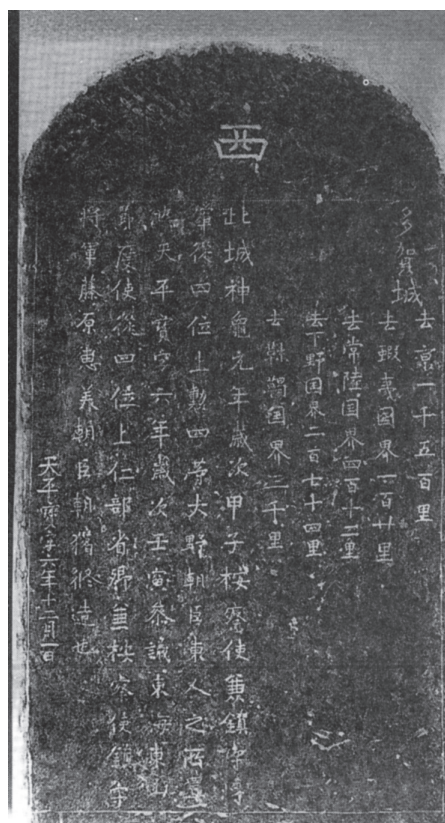 西
多賀城
去京一千五百里
去蝦夷國界一百廿里
去常陸国界四百十二里
去下野国界二百七十四里
去靺鞨国界三千里
此城神龜元年歳次甲子桉察使兼鎮守将
軍從四位上勲四等大野朝臣東人之所置
也天平寶字六年歳次壬寅參議東海東山
節度使從四位上仁部省卿兼桉察使鎮守
将軍藤原惠美朝臣朝獦修造也
天平寶字六年十二月一日